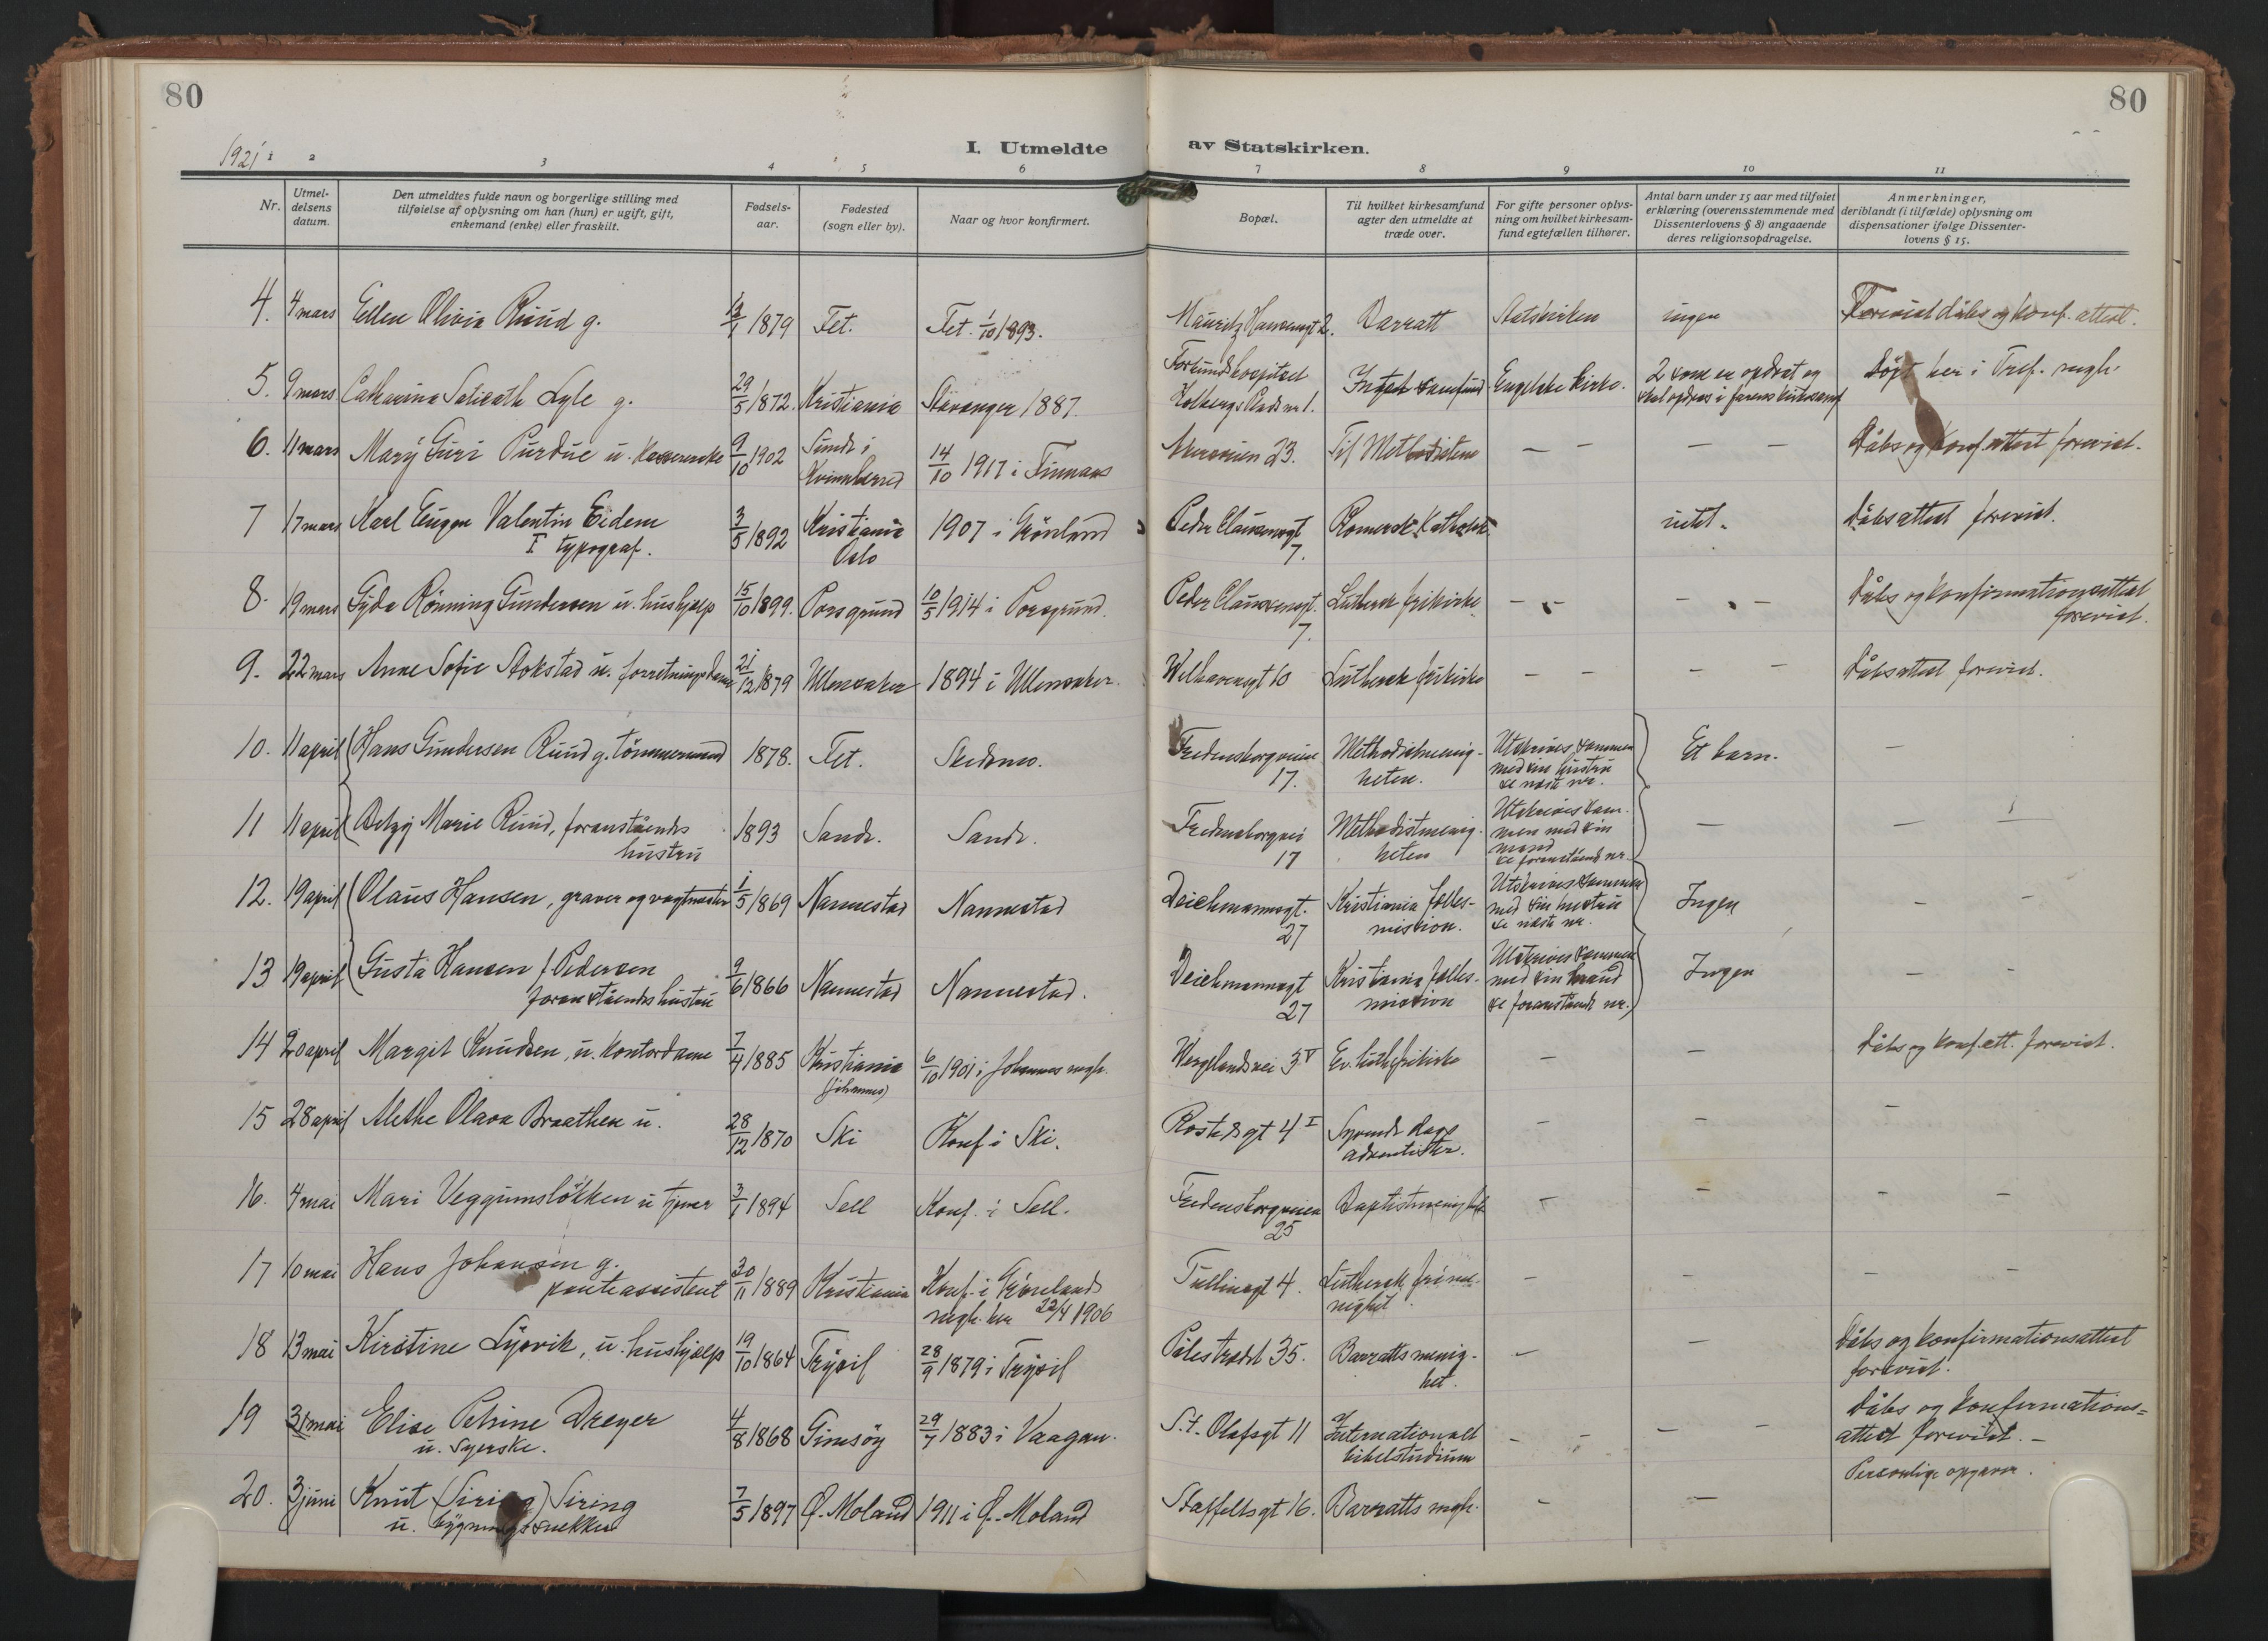 80
80
1921
I. Utmeldte av Statskirken.
1 2 3 4 5 6 7 8 9 10 11
Nr.
Utmel-
delsens
datum.
Den utmeldtes fulde navn og borgerlige stilling med
tilføielse af oplysning om han (hun) er ugift, gift,
enkemand (enke) eller fraskilt.
Fødsels-
aar.
Fødested
(sogn eller by).
Naar og hvor konfirmert.
Bopæl.
Til hvilket kirkesamfund
agter den utmeldte at
træde over.
For gifte personer oplys-
ning om hvilket kirkesam-
fund egtefællen tilhører.
Antal barn under 15 aar med tilføiet
erklæring (overensstemmende med
Dissenterlovens § 8) angaaende
deres religionsopdragelse.
Anmerkninger,
deriblandt (i tilfælde) oplysning om
dispensationer ifølge Dissenter-
lovens § 15.
4. 4 mars Ellen Olivia Ruud g. 13/1 1879 Fet. Fet. 1/10 1893. Mauritz Hansensgt 2. Barratt Statskirken ingen Forevist dåbs og konf. attest.
5. 9 mars Catharina Lyle g. 29/5 1872. Kristiania Stavanger 1887. Holbergs Plads nr 1. Intet samfund Engelske kirke. 2 som er opdrat og
skal opdras i farens kirkesamf Döpt her i Tref. mgh.
6. 11 mars Mary Guri Purdue u. Kassererske 9/10 1902 Sunde i
Kvinnherred 14/10 1917 i Finnaas 23. Til Methodistene — — — — Dåbs og konf. attest forevist.
7 17 mars Karl Eugen Valentin Eidem
typograf. 3/5 1892 Kristiania
Oslo 1907 i Grönland Peder Claussensgt
7. Romersk Katholsk. intet. Dåbsattest forevist.
8. 19 mars Gyda Rönning Gundersen u. hushjælp 15/10 1899. Porsgrund 10/5 1914 i Porsgrund. Peder Claussensgt.
7. Luthersk frikirke — — — — Dåbs og konfirmationsattest
forevist.
9. 22 mars Anne Sofie Stokstad u. forretningsdame 21/12 1879 Ullensaker 1894 i Ullensaker. Welhavensgt 10 Luthersk frikirke — — — — Dåbsattest forevist.
10. 11 april Hans Gundersen Ruud g. tömmermand 1878. Fet. Skedsmo. Fredensborgveien
17. Methodistmenig-
heten. Utskrives sammen
med sin hustru
se næste nr. Et barn. —
11 11 april Betzy Marie Ruud, foranståendes
hustru 1893 Sande. Sande. Fredensborgvei
17 Methodistmenig-
heten Utskrives sam-
men med sin
mand
se foranstående nr. — — —
12. 19 april Olaus Hansen, graver og vagtmester 1/5 1869 Nannestad Nannestad Deichmannsgt.
27 Kristiania fælles-
mission. Utskrives sammen
med sin hustru
se næste nr. Ingen — —
13 19 april Gusta Hansen f. Pedersen
foranståendes hustru 9/6 1866 Nannestad Nannestad. Deichmannsgt
27 Kristiania fælles-
mission Utskrives sammen
med sin mand
se foranstående nr. Ingen — —
14 20 april Margit Knudsen, u. kontordame 7/4 1885 Kristiania
(Johannes) 6/10 1901 i Johannes mgh. Wergelandsvei 3 V Ev. luth. frikirke — — Dåbs og konf. att. forevist.
15 28 april Alethe Olava Braathen u. 28/12 1870 Ski Konf i Ski. Rostedsgt 4 I Syvende dags
adventister. — — —
16. 4 mai Mari Veggumslökken u tjener 3/1 1894 Sell Konf. i Sell. Fredensborgveien
25 Baptistmenighet — — — —
17 10 mai Hans Johansen g.
panteassistent 30/11 1889 Kristiania Konf. i Grönlands
mgh. her 22/4 1906 Tullinsgt 4. Luthersk frime-
nighet. — — — —
18 13 mai Kirstine Lysvik, u. hushjælp 19/10 1864 Trysil 28/9 1879 i Trysil Pilestrædet 35. Barratts menig-
het. — — Dåbs og konfirmationsattest
forevist.
19 31 mai Elise Petrine Dreyer
u. syerske. 4/8 1868 Gimsöy 29/7 1883 i Vaagan. S.t. Olafsgt 11 Internationalt
bibelstudium — — — — Dåbs og konfirmations=
attest forevist. —
20. 3 juni Knut (Siring) Siring
u. bygningssnekker 7/5 1897 Ø. Moland 1911 i Ø. Moland Staffeldtsgt 16. Barratts mgh. — — Personlige opgaver.